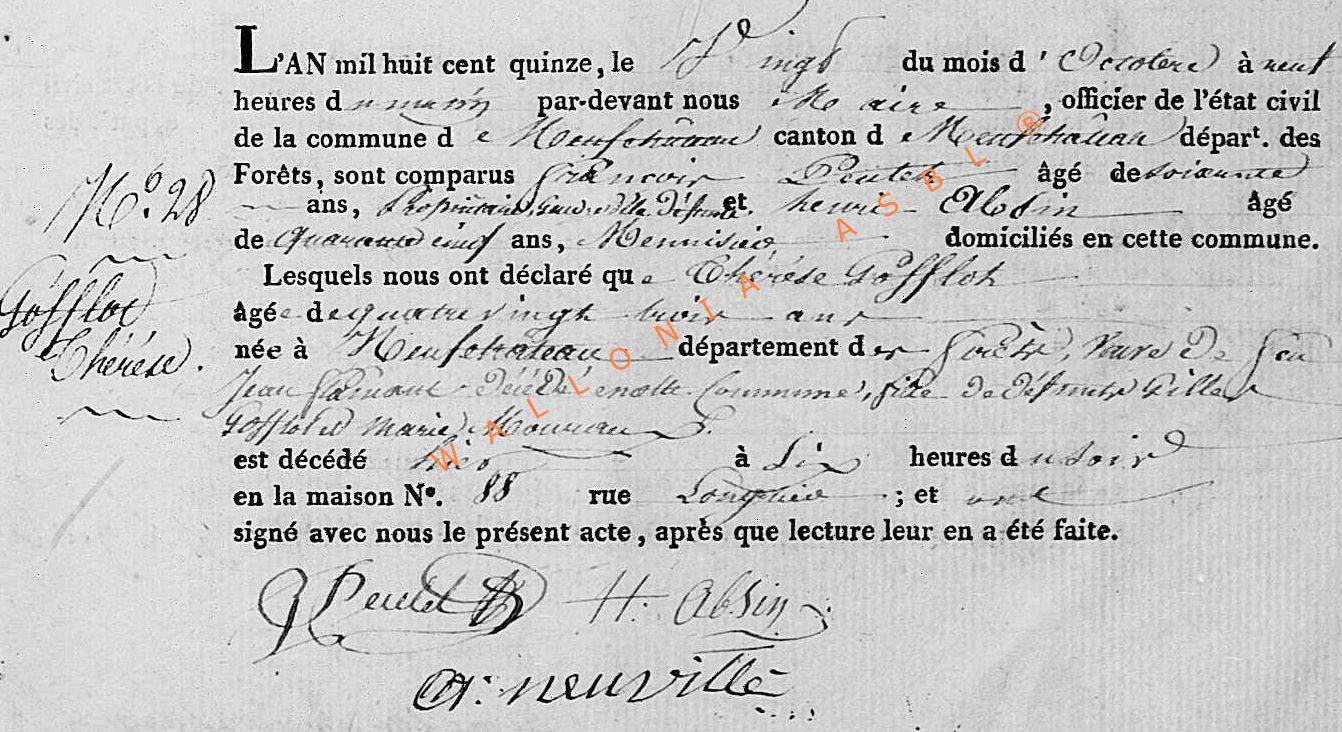 L'AN mil huit cent quinze, le Vingt du mois d'Octobre à neuf
heures du matin par-devant nous Maire, officier de l'état civil
de la commune de Neufchâteau canton de Neufchâteau départ. des
Forêts, sont comparus François Peuteh âgé de soixante
ans, Propriétaire, de la Défunte et henri Absin âgé
de quarante cinq ans, Menuisier domiciliés en cette commune.
Lesquels nous ont déclaré que Thérèse Gofflot
âgée de quatre vingt trois ans
née à Neufchâteau département des Forêts, Veuve De feu
Jean Décédé en cette Commune, fille de défunts Gilles
Gofflot et Marie
est décédé hier à Six heures du soir
en la maison N°. 88 rue ; et ont
signé avec nous le présent acte, après que lecture leur en a été faite.
N°. 28
Gofflot
Thérèse.
H. Absin
neuville
WALLONIA ASBL ®